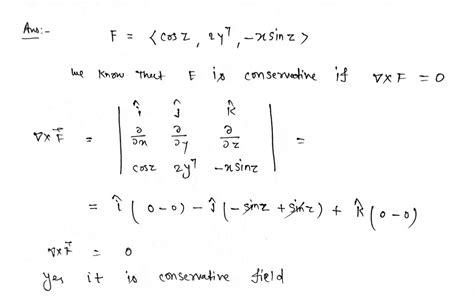 Ans:-
F = < cos z , 2y⁷ , -x sin z >
we know that F is conservative if ∇×F = 0
∇×F⃗ = | î ĵ k̂ |
| ∂/∂x ∂/∂y ∂/∂z | =
| cos z 2y⁷ -x sin z |
= î ( 0 - 0 ) - ĵ ( - sin z + sin z ) + k̂ ( 0 - 0 )
∇×F⃗ = 0
Yes it is conservative field